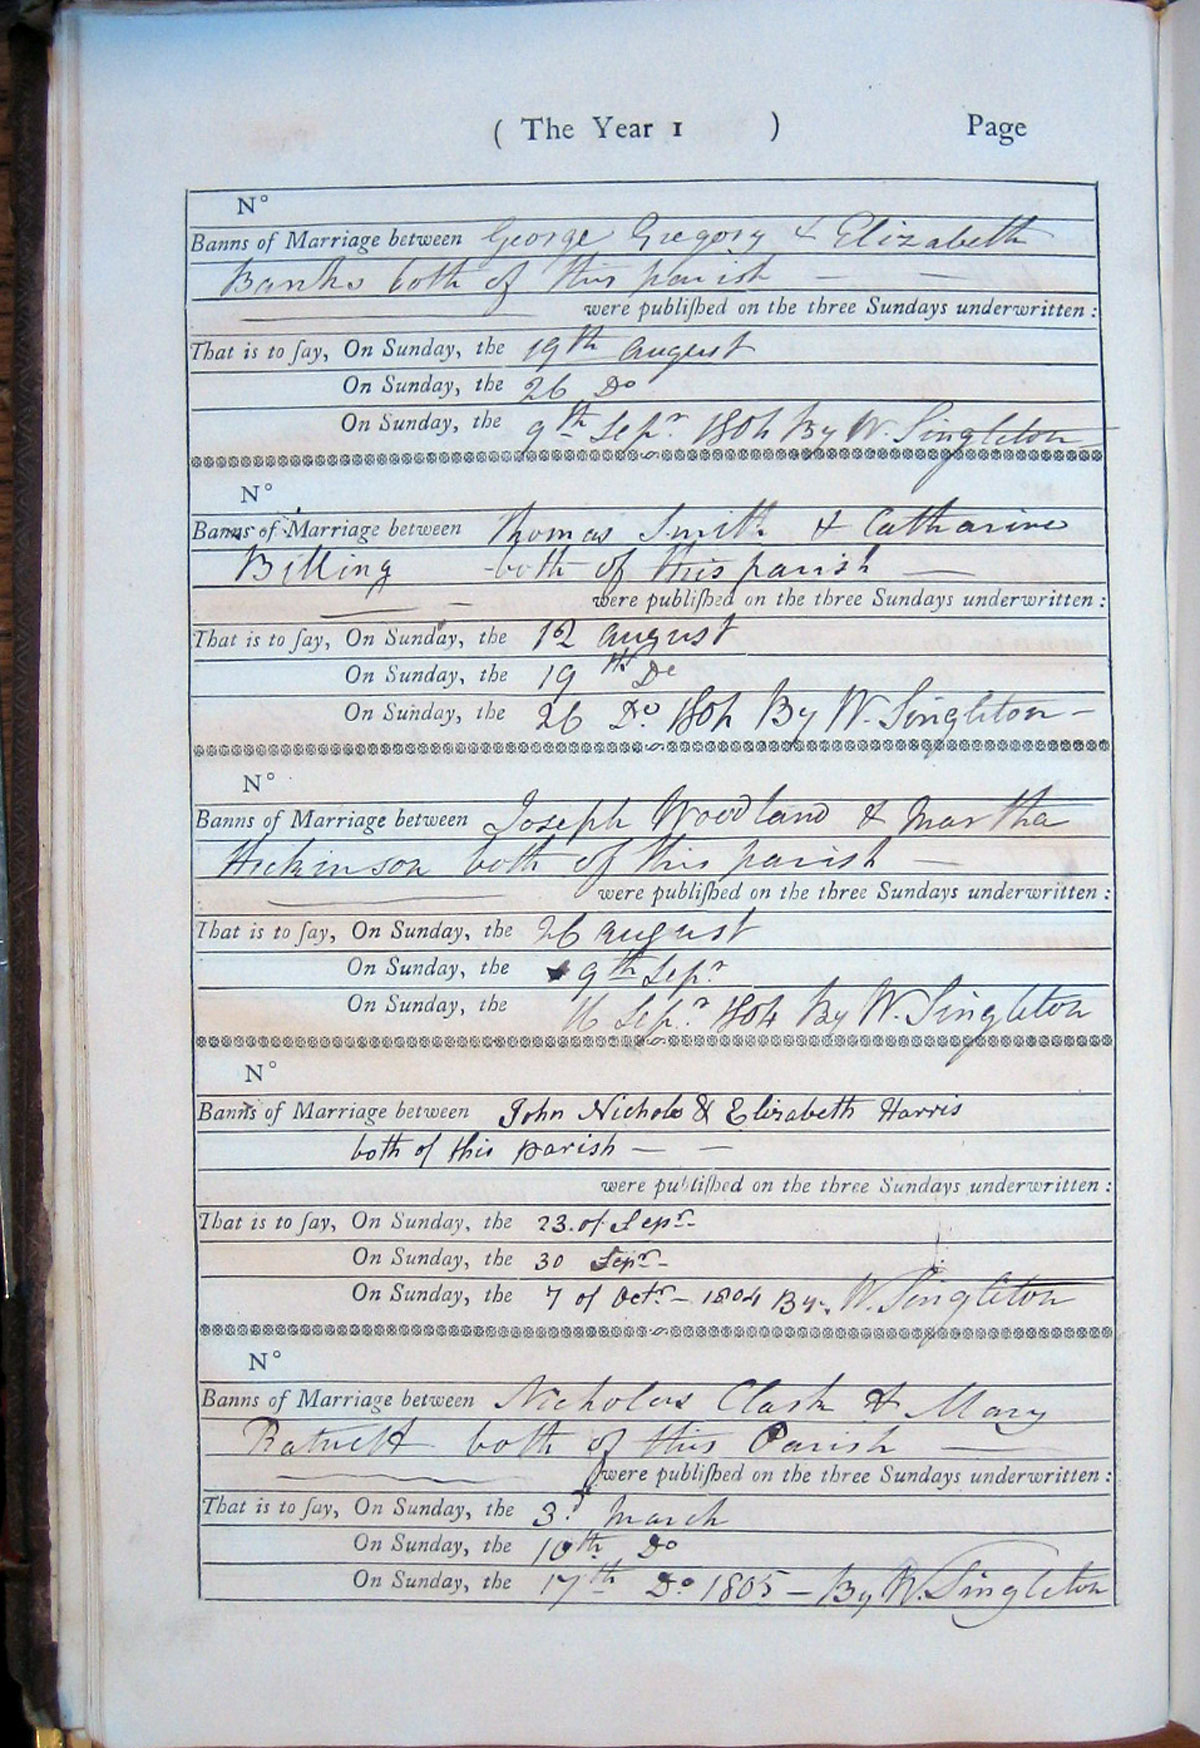 ( The Year 1 ) Page
N°
Banns of Marriage between George Gregory & Elizabeth
Banks both of this parish — —
were publiſhed on the three Sundays underwritten :
That is to ſay, On Sunday, the 19th august
On Sunday, the 26 Do
On Sunday, the 9th Sepr. 1804 By W. Singleton
N°
Banns of Marriage between Thomas Smith & Catharine
Billing both of this parish —
were publiſhed on the three Sundays underwritten :
That is to ſay, On Sunday, the 12 august
On Sunday, the 19th Do
On Sunday, the 26 Do 1804 By W. Singleton –
N°
Banns of Marriage between Joseph Woodland & Martha
Hickinson both of this parish —
were publiſhed on the three Sundays underwritten :
That is to ſay, On Sunday, the 26 august
On Sunday, the 9th Sepr
On Sunday, the 16 Sepr. 1804 By W. Singleton
N°
Banns of Marriage between John Nichols & Elizabeth Harris
both of this parish — —
were publiſhed on the three Sundays underwritten :
That is to ſay, On Sunday, the 23. of Sepr -
On Sunday, the 30 Sepr -
On Sunday, the 7 of Octr – 1804 By W. Singleton
N°
Banns of Marriage between Nicholas Clark & Mary
both of this Parish —
were publiſhed on the three Sundays underwritten :
That is to ſay, On Sunday, the 3d. March
On Sunday, the 10th Do
On Sunday, the 17th Do 1805 – By W. Singleton